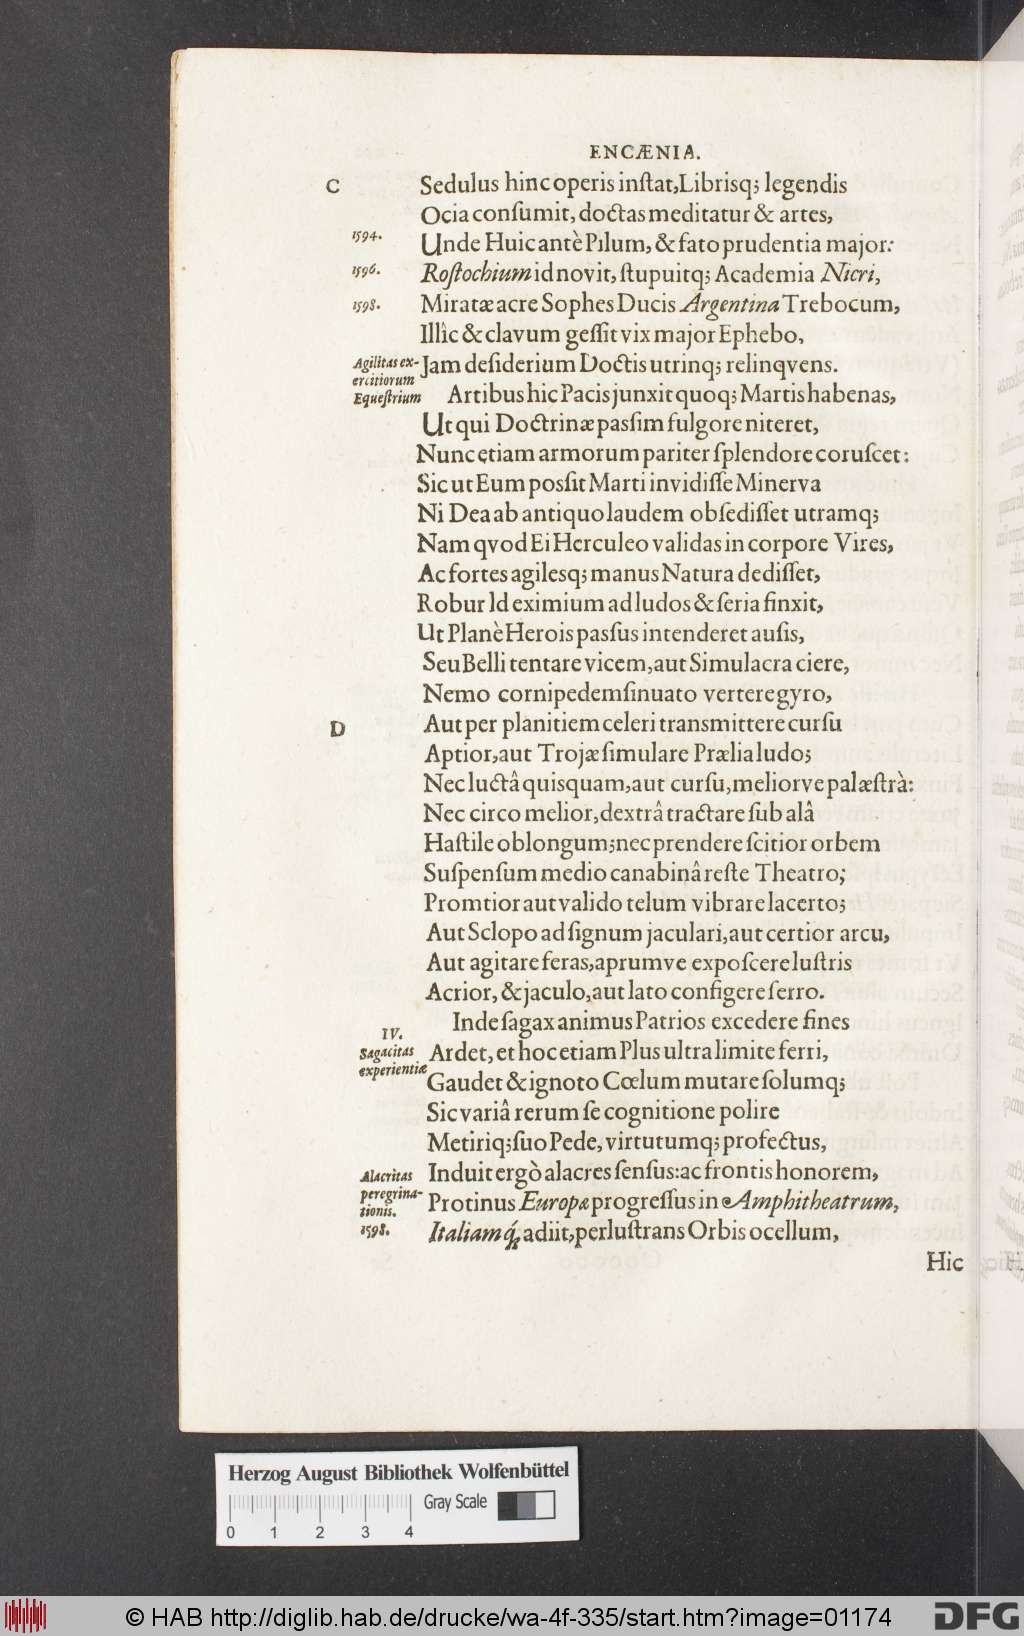 ENCÆNIA.
C
Sedulus hinc operis inſtat, Librisq; legendis
Ocia conſumit, doctas meditatur & artes,
1594.
Unde Huic antè Pilum, & fato prudentia major:
1596.
Roſtochium id novit, ſtupuitq; Academia Nicri,
1598.
Miratæ acre Sophes Ducis Argentina Trebocum,
Illîc & clavum geſſit vix major Ephebo,
Agilitas ex-
ercitiorum
Equeſtrium
Jam deſiderium Doctis utrinq; relinqvens.
Artibus hic Pacis junxit quoq; Martis habenas,
Ut qui Doctrinæ paſsim fulgore niteret,
Nunc etiam armorum pariter ſplendore coruſcet:
Sic ut Eum poſsit Marti invidiſſe Minerva
Ni Dea ab antiquo laudem obſediſſet utramq;
Nam qvod Ei Herculeo validas in corpore Vires,
Ac fortes agilesq; manus Natura dediſſet,
Robur Id eximium ad ludos & ſeria finxit,
Ut Planè Herois paſsus intenderet auſis,
Seu Belli tentare vicem, aut Simulacra ciere,
Nemo cornipedem ſinuato vertere gyro,
D
Aut per planitiem celeri transmittere curſu
Aptior, aut Trojæ ſimulare Prælia ludo;
Nec luctâ quisquam, aut curſu, meliorve palæſtrà:
Nec circo melior, dextrâ tractare ſub alâ
Haſtile oblongum; nec prendere ſcitior orbem
Suſpenſum medio canabinâ reſte Theatro;
Promtior aut valido telum vibrare lacerto;
Aut Sclopo ad ſignum jaculari, aut certior arcu,
Aut agitare feras, aprumve expoſcere luſtris
Acrior, & jaculo, aut lato configere ferro.
Inde ſagax animus Patrios excedere fines
IV.
Sagacitas
experientiæ
Ardet, et hoc etiam Plus ultra limite ferri,
Gaudet & ignoto Cœlum mutare ſolumq;
Sic variâ rerum ſe cognitione polire
Metiriq; ſuo Pede, virtutumq; profectus,
Alacritas
peregrina-
tionis.
1598.
Induit ergò alacres ſenſus: ac frontis honorem,
Protinus Europæ progreſſus in Amphitheatrum,
Italiamq́; adiit, perluſtrans Orbis ocellum,
Hic
Herzog August Bibliothek Wolfenbüttel
Gray Scale
0 1 2 3 4
© HAB http://diglib.hab.de/drucke/wa-4f-335/start.htm?image=01174
DFG